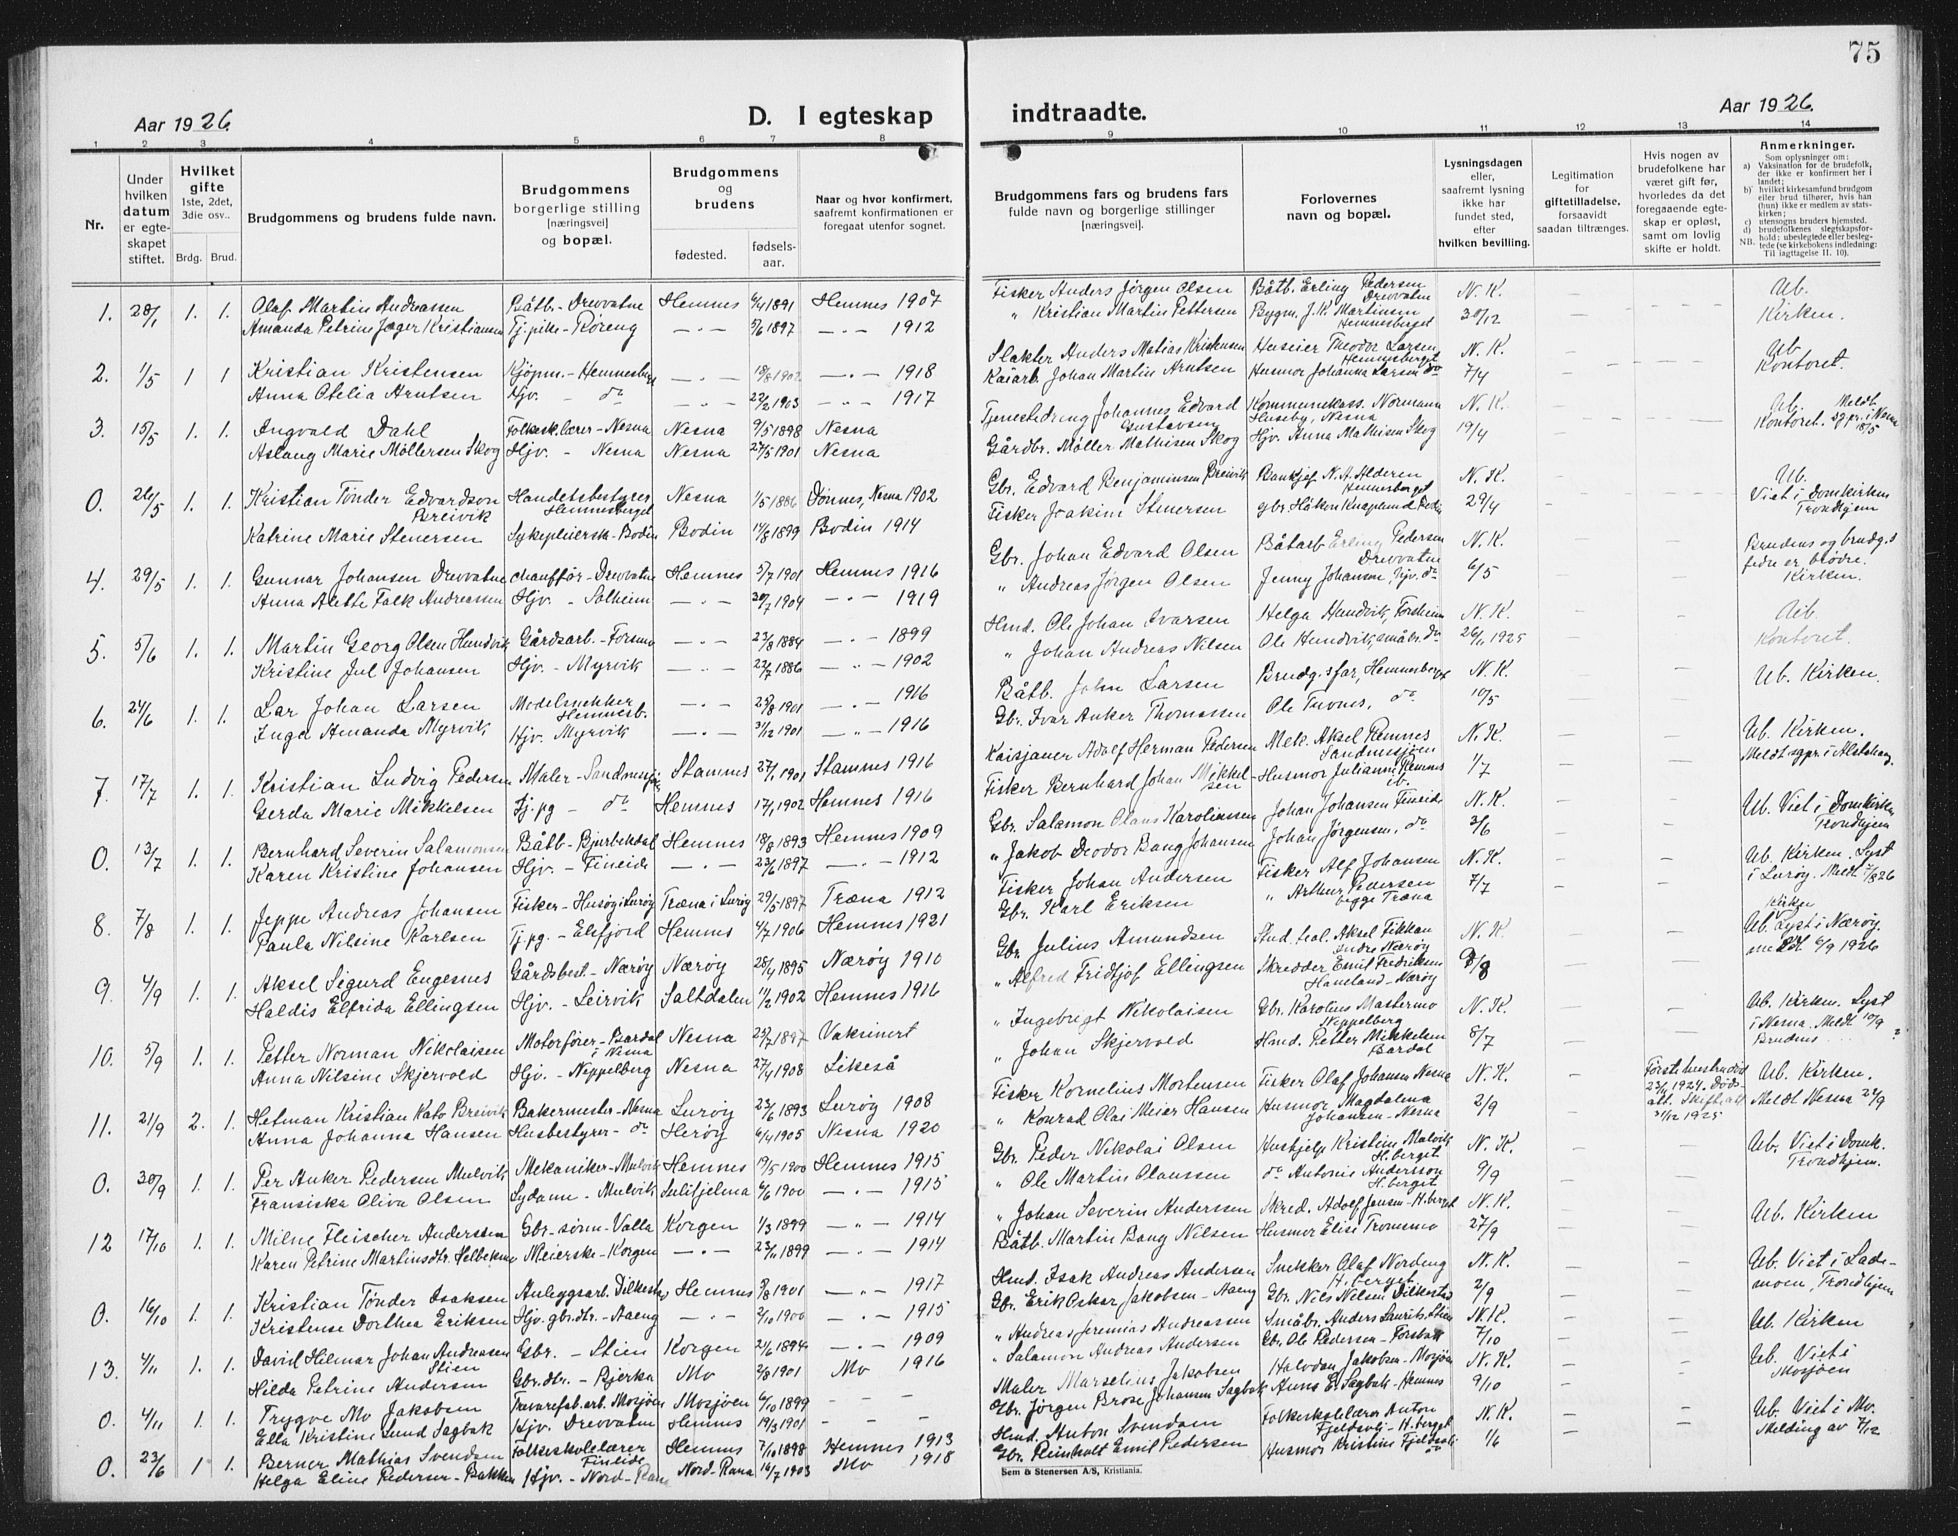 75
Aar 1926.
D. I egteskap
indtraadte.
Aar 1926.
1 2 3 4 5 6 7 8 9 10 11 12 13 14
Nr.
Under hvilken datum er egte-skapet stiftet.
Hvilket gifte 1ste, 2det, 3die osv..
Brdg. Brud.
Brudgommens og brudens fulde navn.
Brudgommens borgerlige stilling [næringsvei] og bopæl.
Brudgommens og brudens
fødested.
fødsels-aar.
Naar og hvor konfirmert, saafremt konfirmationen er foregaat utenfor sognet.
Brudgommens fars og brudens fars fulde navn og borgerlige stillinger [næringsvei].
Forlovernes navn og bopæl.
Lysningsdagen eller, saafremt lysning ikke har fundet sted, efter hvilken bevilling.
Legitimation for giftetilladelse. forsaavidt saadan tiltrænges.
Hvis nogen av brudefolkene har været gift før, hvorledes da det foregaaende egte-skap er opløst, samt om lovlig skifte er holdt.
Anmerkninger.
Som oplysninger om:
a) Vaksination for de brudefolk, der ikke er konfirmert her i landet;
b) hvilket kirkesamfund brudgom eller brud tilhører, hvis han (hun) ikke er medlem av stats-kirken;
c) utensogns bruders hjemsted.
d) brudefolkenes slegtskapsfor-hold: ubeslegtede eller besleg-tede (se kirkebokens indledning: Til iagttagelse II. 10).
NB.
1. 28/1 1. 1. Olaf Martin Andreassen Båtb. - Drevvatne Hemnes 6/4 1891 Hemnes 1907 Fisker Anders Jørgen Olsen Båtb. Erling Pedersen Drevvatne N.K. Ub.
Amanda Petrine Jæger Kristiansen Tj.pike - Røreng — " — 5/6 1897 — " — 1912 " Kristian Martin Pettersen Bygm. J. K. Martinsen Hemnesberget 30/12 Kirken.
2. 1/5 1 1 Kristian Kristensen Kjøpm. - Hemnesberg — " — 18/8 1902 — " — 1918 Slakter Anders Matias Kristensen Huseier Theodor Larsen Hemnesberget N.K. Ub.
Anna Otelia Arntsen Hjv. - do — " — 22/2 1903 — " — 1917 Kaiarb. Johan Martin Arntsen Husmor Johanna Larsen do 7/4 Kontoret.
3. 15/5 1. 1. Ingvald Dahl Folkesk.lærer - Nesna Nesna 9/5 1898 Nesna Tjenestedreng Johannes Edvard Gustavsen Kommunekass. Normann Huseby, Nesna N.K. Ub. Meldt
Aslaug Marie Möllersen Skog Hjv. - Nesna Nesna 27/5 1901 Nesna Gårdbr. Møller Mathisen Skog Hjv. Anna Mathisen Skog 19/4 Kontoret. sgpr. i Nesna 18/5
0. 26/5 1. 1. Kristian Tönder Edvardson Breivik Handelsbestyrer Hemnesberget Nesna 1/5 1886 Dönnes, Nesna 1902 Gbr. Edvard Benjaminsen Breivik Bankkjef N. A. Alderen Hemnesberget N.K. Ub. Viet i Domkirken Trondhjem
Katrine Marie Stenersen Sykepleiersk - Bodin Bodin 14/8 1899 Bodin 1914 Fisker Joakim Stenersen gbr. Håken 29/4
4. 29/5 1. 1. Gunnar Johansen Drevvatne Chauffør - Drevvatne Hemnes 5/7 1901 Hemnes 1916 Gbr. Johan Edvard Olsen Båtarb Erling Pedersen Drevvatne N.K. Brudens og brudg.s fedre er brødre.
Anna Alette Falk Andreassen Hjv. - Solheim — " — 20/7 1904 — " — 1919 " Andreas Jörgen Olsen Jenny Johansen, hjv. do 6/5 Kirken.
5. 5/6 1. 1. Martin Georg Olsen Hundvik Gårdsarb. - Forsmo — " — 23/8 1884 — " — 1899 Hmd. Ole Johan Ivarsen Helga Hundvik, Forsheim N.K. Ub.
Kristine Jul Johansen Hjv. - Myrvik — " — 22/7 1886 — " — 1902 " Johan Andreas Nilsen Ole Hundvik, småbr. do 26/11 1925 Kontoret.
6. 24/6 1. 1. Lar Johan Larsen Modelsnekker Hemnesb. — " — 23/8 1901 — " — 1916 Båtb. John Larsen Brudg.s far, Hemnesberget N.K. Ub. Kirken.
Inga Amanda Myrvik Hjv. Myrvik — " — 31/12 1901 — " — 1916 Gbr. Ivar Anker Thomassen Ole Tuvnes, do 10/5
7. 17/7 1. 1. Kristian Ludvig Pedersen Maler - Sandnessjøen Stamnes 27/1 1901 Stamnes 1916 Kaisjauer Adolf Herman Pedersen Mek. Aksel Remnes Sandnessjøen N.K. Ub. Kirken.
Gerda Marie Mikkelsen Tj.pg - do Hemnes 17/1 1902 Hemnes 1916 Fisker Bernhard Johan Mikkel-sen Husmor Julianne Remnes ib. 1/7 Meldt sgpr. i Alstahaug
0. 13/7 1. 1. Bernhard Severin Salamonsen Båtb - Bjurbekdal Hemnes 18/8 1893 Hemnes 1909 Gbr. Salamon Olaus Karoliussen Johan Johansen Fineide N.K. Ub. Viet i Domkirken Trondhjem
Karen Kristine Johansen Hjv. - Fineide — " — 23/6 1897 — " — 1912 " Jakob Deodor Bang Johansen Johan Jørgensen, do 3/6
8. 7/8 1. 1. Jeppe Andreas Johansen Fisker - Husøy i Lurøy Træna i Lurøy 29/5 1897 Træna 1912 Fisker Johan Andersen Fisker Alf Johansen N.K. Ub. Kirken. Lyst i Lurøy. Meldt 7/8 26
Paula Nilsine Karlsen Tj.pg. - Elsfjord Hemnes 4/7 1906 Hemnes 1921 Gbr. Karl Eriksen " Arthur Pedersen begge Træna 7/7 Kirken
9. 4/9 1. 1. Aksel Sigurd Engesnes Gårdsbest. - Nærøy Nærøy 28/4 1895 Nærøy 1910 Gbr. Julius Amundsen Stud. real. Aksel Fikkan Indre Nærøy N.K. Ub. Lyst i Nærøy.
Haldis Elfrida Ellingsen Hjv. - Leirvik Saltdalen 11/2 1902 Hemnes 1916 " Alfred Fridtjof Ellingsen Skredder Emil Fredriksen Nærøy 8/8 meldt 6/9 1926
10. 5/9 1. 1. Petter Norman Nikolaisen Motorfører - Bardal i Nesna Nesna 23/7 1897 Vaksinert " Ingebrigt Nikolaisen Gbr. Karolius Mastermo Nippelberg N.K. Ub. Kirken. Lyst i Nesna. Meldt 10/9
Anna Nilsine Skjervold Hjv. - Nippelberg Nesna 27/4 1908 Likeså " Johan Skjervold Hmd. Petter Mikkelsen Bardal 8/7 Brudens ?
11. 21/9 2. 1. Hetman Kristian Kato Breivik Bakermester - Nesna Lurøy 23/6 1893 Lurøy 1908 Fisker Kornelius Mortensen Fisker Olaf Johansen Nesna N.K. Første hustru død 23/6 1924. Døds-att. Skifteatt 31/12 1925 Ub. Kirken.
Anna Johanna Hansen Husbestyrer - do Herøy 6/4 1905 Nesna 1920 " Konrad Olai Meier Hansen Husmor Magdalena Johansen - Nesna 2/9 Meldt Nesna 22/9
0. 30/9 1. 1. Per Anker Pedersen Mulvik Mekaniker - Mulvik Hemnes 19/5 1900 Hemnes 1915 Gbr. Peder Nikolai Olsen Hushjelp Kristine Mulvik H.berget N.K. Ub. Viet i Domk. Trondhjem.
Fransiska Oliva Olsen Sydame - Mulvik Sulitjelma 6/6 1900 — " — 1915 " Ole Martin Olaussen do Antonie Anderssen H.berget 9/9
12 17/10 1. 1. Milne Fleischer Anderssen Gbr. sønn - Valla Korgen 1/3 1899 — " — 1914 " Johan Severin Anderssen Skred. Adolf Jensen - H.berget N.K. Ub. Kirken
Karen Petrine Martinsdtr. Helbekmo Meierske - Korgen — " — 23/6 1899 — " — 1914 Båtb. Martin Bang Nilsen Husmor Elise Tronsmo 27/9
0. 16/10 1. 1. Kristian Tönder Isaksen Anleggsarb. Dilkestad Hemnes 8/8 1901 — " — 1917 Hmd. Isak Andreas Andersen Snekker Olaf Nordeng H.berget N.K. Ub. Viet i Lade-moen, Trondhjem
Kristense Dorthea Eriksen Hjv. gbr.dtr. - Aaeng — " — 2/10 1900 — " — 1915 Gbr. Erik Oskar Jakobsen - Aaeng Gbr. Nils Nilsen Dilkestad 2/9
13. 4/11 1. 1. David Hilmar Johan Andreasen Stien Gbr. - Stien Korgen 21/6 1894 — " — 1909 " Andreas Jeremias Andreassen Småbr. Anders Laurits. Stien N.K. Ub. Kirken
Hilda Petrine Andersen Gbr.dtr. - Bjerka Mo 2/8 1901 Mo 1916 " Salamon Andreas Andersen Gbr. Ole Pedersen - Forsbakk 7/10
0. 4/11 1. 1. Trygve Mo Jakobsen Trevarefab.arb. Mosjøen Mosjøen 6/10 1899 - - Maler Marselius Jakobsen Halvdan Jakobsen - Mosjøen N.K. Ub. Viet i Mosjøen
Ella Kristine Lund Sagbak Hjv. Drevvatne Hemnes 19/3 1901 - - Gbr. Jörgen Brose Johansen Sagbak Anna E. Sagbak - Hemnes 9/10
0. 23/6 1 1. Berner Mathias Svendsen Folkeskolelærer Fineide Hemnes 7/10 1898 Hemnes 1913 Hmd. Anton Svendsen Folkeskolelærer Anton Fjeldsoli - H.berget N.K. Ub. Viet i Mo.
Helga Eline Pedersen - Bakken Hjv. - Nord-Rana Nord-Rana 16/7 1903 Mo 1918 Gbr. Reinholt Emil Pedersen Husmor Kristine Fjeldsoli do 1/6 Melding av 7/12
Sem & Stenersen A/S, Kristiania.